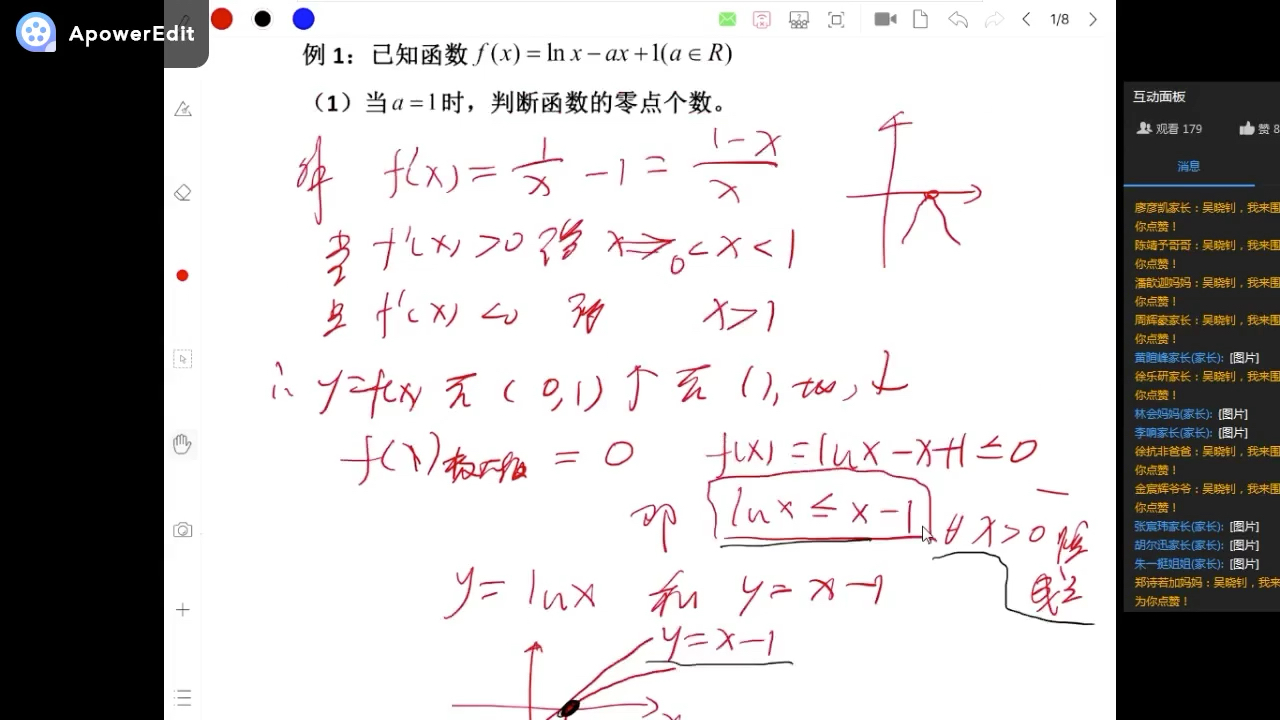 ApowerEdit
1/8
例 1：已知函数 f(x)=ln x-ax+1(a∈R)
（1）当 a=1时，判断函数的零点个数。
解 f'(x)=1/x-1=(1-x)/x
当 f'(x)>0 得 0<x<1
且 f'(x)<0 得 x>1
∴ y=f(x) 在(0,1)↑在(1,+∞)↓
f(x)极大值=0 f(x)=lnx-x+1≤0
即 lnx≤x-1 ∀x>0 恒成立
y=lnx 和 y=x-1
y=x-1
互动面板
观看 179 赞 8
消息
廖彦凯家长：吴晓钊，我来围
你点赞！
陈靖予哥哥：吴晓钊，我来围
你点赞！
潘歆迦妈妈：吴晓钊，我来围
你点赞！
周辉豪家长：吴晓钊，我来围
你点赞！
黄暄峰家长(家长)：[图片]
徐乐研家长：吴晓钊，我来围
你点赞！
林会妈妈(家长)：[图片]
李响家长(家长)：[图片]
徐抗非爸爸：吴晓钊，我来围
你点赞！
金宸辉爷爷：吴晓钊，我来围
你点赞！
张宸玮家长(家长)：[图片]
胡尔迅家长(家长)：[图片]
朱一挺姐姐(家长)：[图片]
郑诗若加妈妈：吴晓钊，我来围
为你点赞！